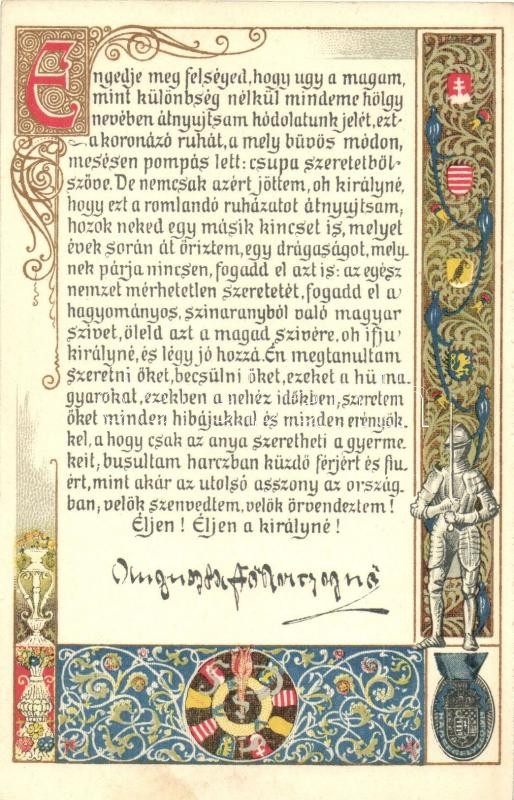 Engedje meg felséged, hogy ugy a magam,
mint különbség nélkül mindeme hölgy
nevében átnyujtsam hódolatunk jelét, ezt
a koronázó ruhát, a mely bűvös módon,
mesésen pompás lett: csupa szeretetből
szőve. De nemcsak azért jöttem, oh királyné,
hogy ezt a romlandó ruházatot átnyujtsam;
hozok neked egy másik kincset is, melyet
évek során át őriztem, egy drágaságot, mely-
nek párja nincsen, fogadd el azt is: az egész
nemzet mérhetetlen szeretetét, fogadd el a
hagyományos, szinaranyból való magyar
szivet, öleld azt a magad szivére, oh ifju
királyné, és légy jó hozzá. Én megtanultam
szeretni őket, becsülni őket, ezeket a hű ma-
gyarokat, ezekben a nehéz időkben, szeretem
őket minden hibájukkal és minden erényök-
kel, a hogy csak az anya szeretheti a gyerme-
keit; busultam harczban küzdő férjért és fiu-
ért, mint akár az utolsó asszony az ország-
ban, velök szenvedtem, velök örvendeztem!
Éljen! Éljen a királyné!
Auguszta főherczegnő